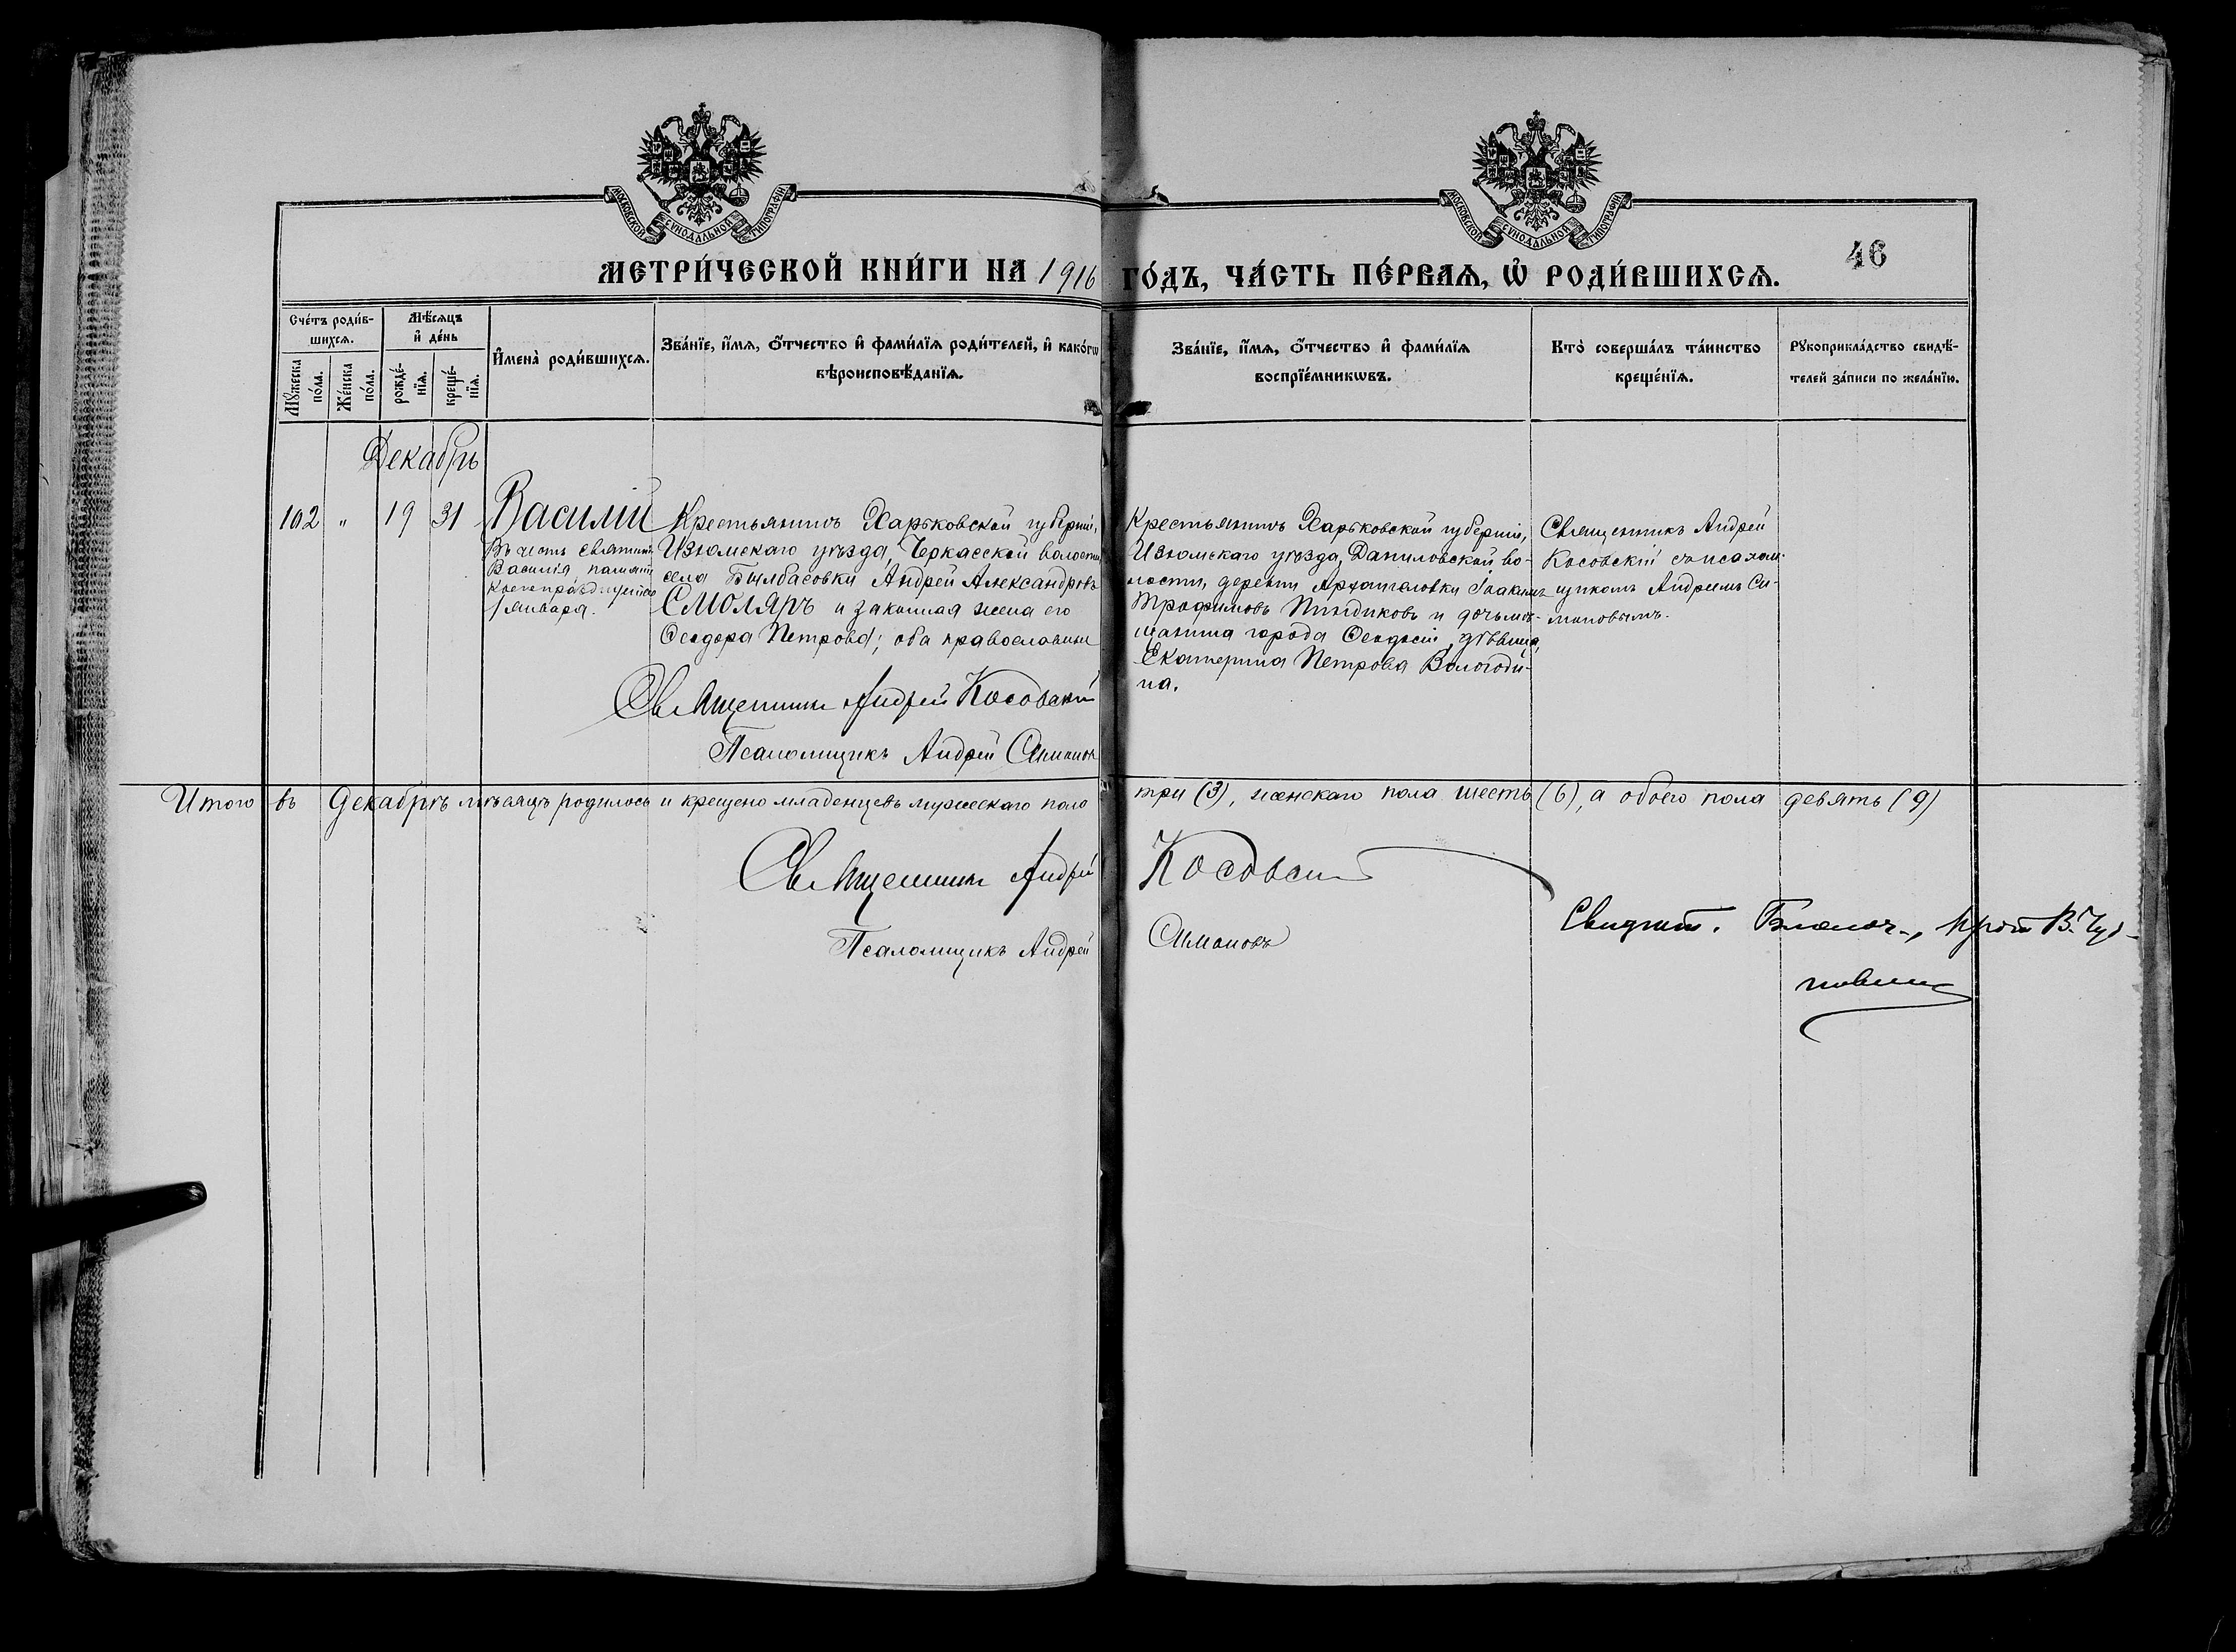 МОСКОВСКОЙ СѴНОДАЛЬНОЙ ТИПОГРАФІИ
МОСКОВСКОЙ СѴНОДАЛЬНОЙ ТИПОГРАФІИ
46
МЕТРИ́ЧЕСКОЙ КНИ́ГИ НА 1916 ГО́ДЪ, ЧА́СТЬ ПЕ́РВАѦ, Ѡ҆ РОДИ́ВШИХСѦ.
Сче́тъ роди́в-
шихсѧ.
Мꙋ́жеска по́ла.
Же́нска по́ла.
Мѣ́сѧцъ
и҆ де́нь
рожде́-
нїѧ.
креще́-
нїѧ.
И҆мена̀ роди́вшихсѧ.
Зва́нїе, и҆́мѧ, ѻ҆́тчество и҆ фами́лїѧ роди́телей, и҆ како́гѡ
вѣроисповѣ́данїѧ.
Зва́нїе, и҆́мѧ, ѻ҆́тчество и҆ фами́лїѧ
воспрїе́мникѡвъ.
Кто̀ соверша́лъ та́инство
креще́нїѧ.
Рꙋкоприкла́дство свидѣ́-
телей за́писи по жела́нїю.
Декабрь
102 " 19 31 Василій
Въ честь святит.
Василія, память
коего празднуется
1 января.
Крестьянинъ Харьковской губерніи,
Изюмскаго уѣзда, Черкасской волости,
села Былбасовки Андрей Александровъ
Смоляръ и законная жена его
Ѳеодора Петрова; оба православные
Крестьянинъ Харьковской губерніи,
Изюмскаго уѣзда, Даниловской во-
лости, деревни Архангеловки Іоакимъ
Трофимовъ Пиндиковъ и дочь мѣ-
щанина города Ѳеодосіи, дѣвица,
Екатерина Петрова Вологоди-
на.
Священникъ Андрей
Косовскій съ псалом-
щикомъ Андреемъ Си-
моновымъ.
Священникъ Андрей Косовскій
Псаломщикъ Андрей Симоновъ
Итого въ Декабрѣ мѣсяцѣ родилось и крещено младенцевъ мужескаго пола три (3), женскаго пола шесть (6), а обоего пола девять (9)
Священникъ Андрей Косовскій
Псаломщикъ Андрей Симоновъ